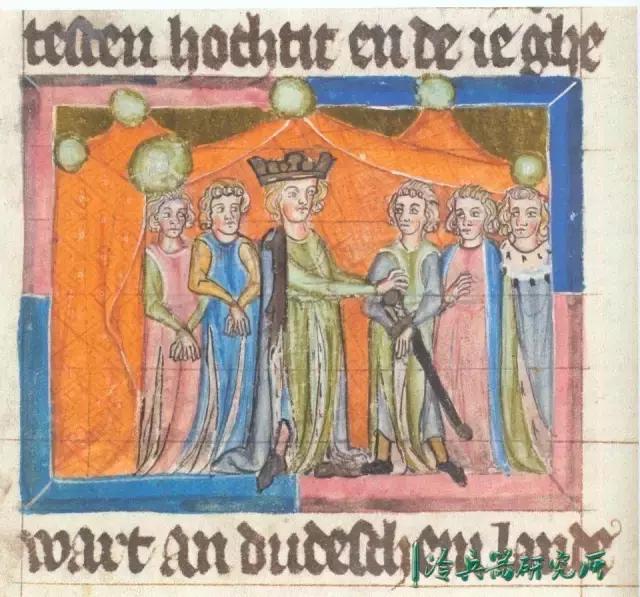 testen hochtit en de ie ghe
wart an dudeschem lande
冷兵器研究所